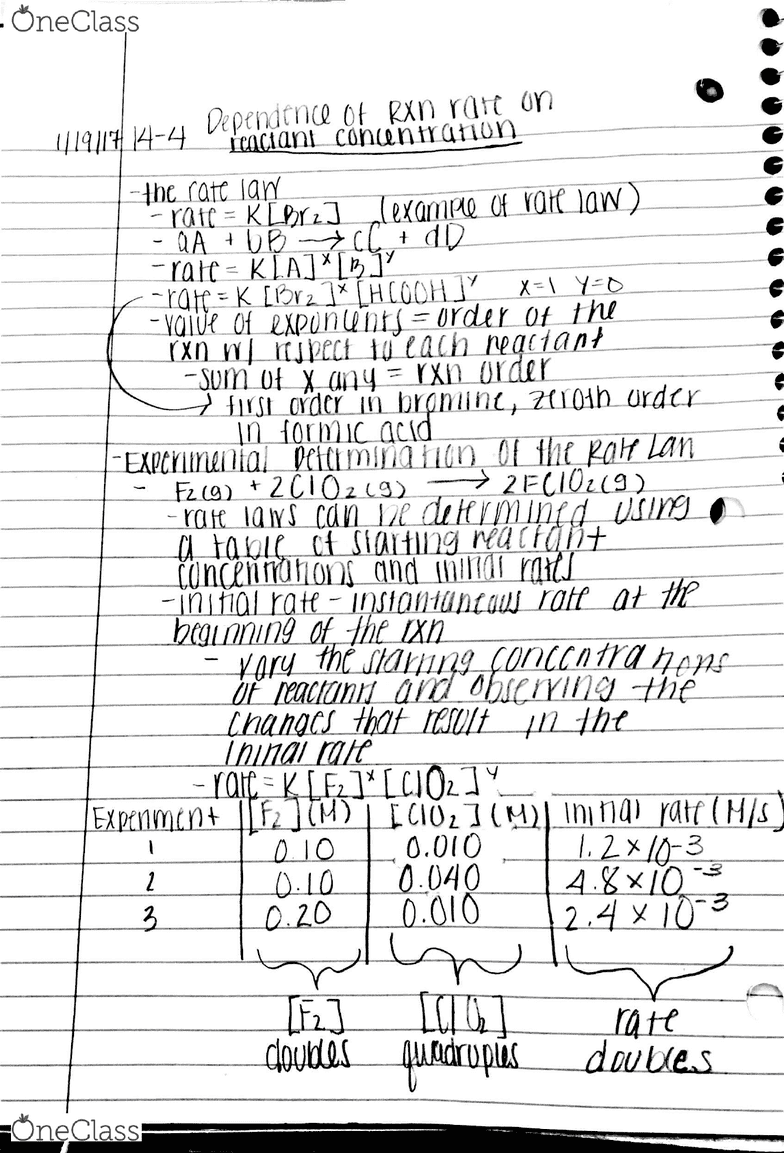 OneClass
Dependence of rxn rate on
1/19/17 14-4 reactant concentration
-the rate law
- rate = K[Br2] (example of rate law)
- aA + bB → cC + dD
- rate = K[A]ˣ[B]ʸ
- rate = K [Br2]ˣ [HCOOH]ʸ x=1 y=0
- value of exponents = order of the
rxn w/ respect to each reactant
- sum of x any = rxn order
→ first order in bromine, zeroth order
in formic acid
- Experimental Determination of the Rate Lan
- F2(g) + 2ClO2(g) → 2FClO2(g)
- rate laws can be determined using
a table of starting reactant
concentrations and initial rates
- initial rate - instantaneous rate at the
beginning of the rxn
- vary the starting concentrations
of reactants and observing the
changes that result in the
initial rate
- rate = K [F2]ˣ [ClO2]ʸ
Experiment | [F2](M) | [ClO2](M) | initial rate (M/s)
1 0.10 0.010 1.2 × 10-3
2 0.10 0.040 4.8 × 10⁻³
3 0.20 0.010 2.4 × 10⁻³
[F2] [ClO2] rate
doubles quadruples doubles
OneClass